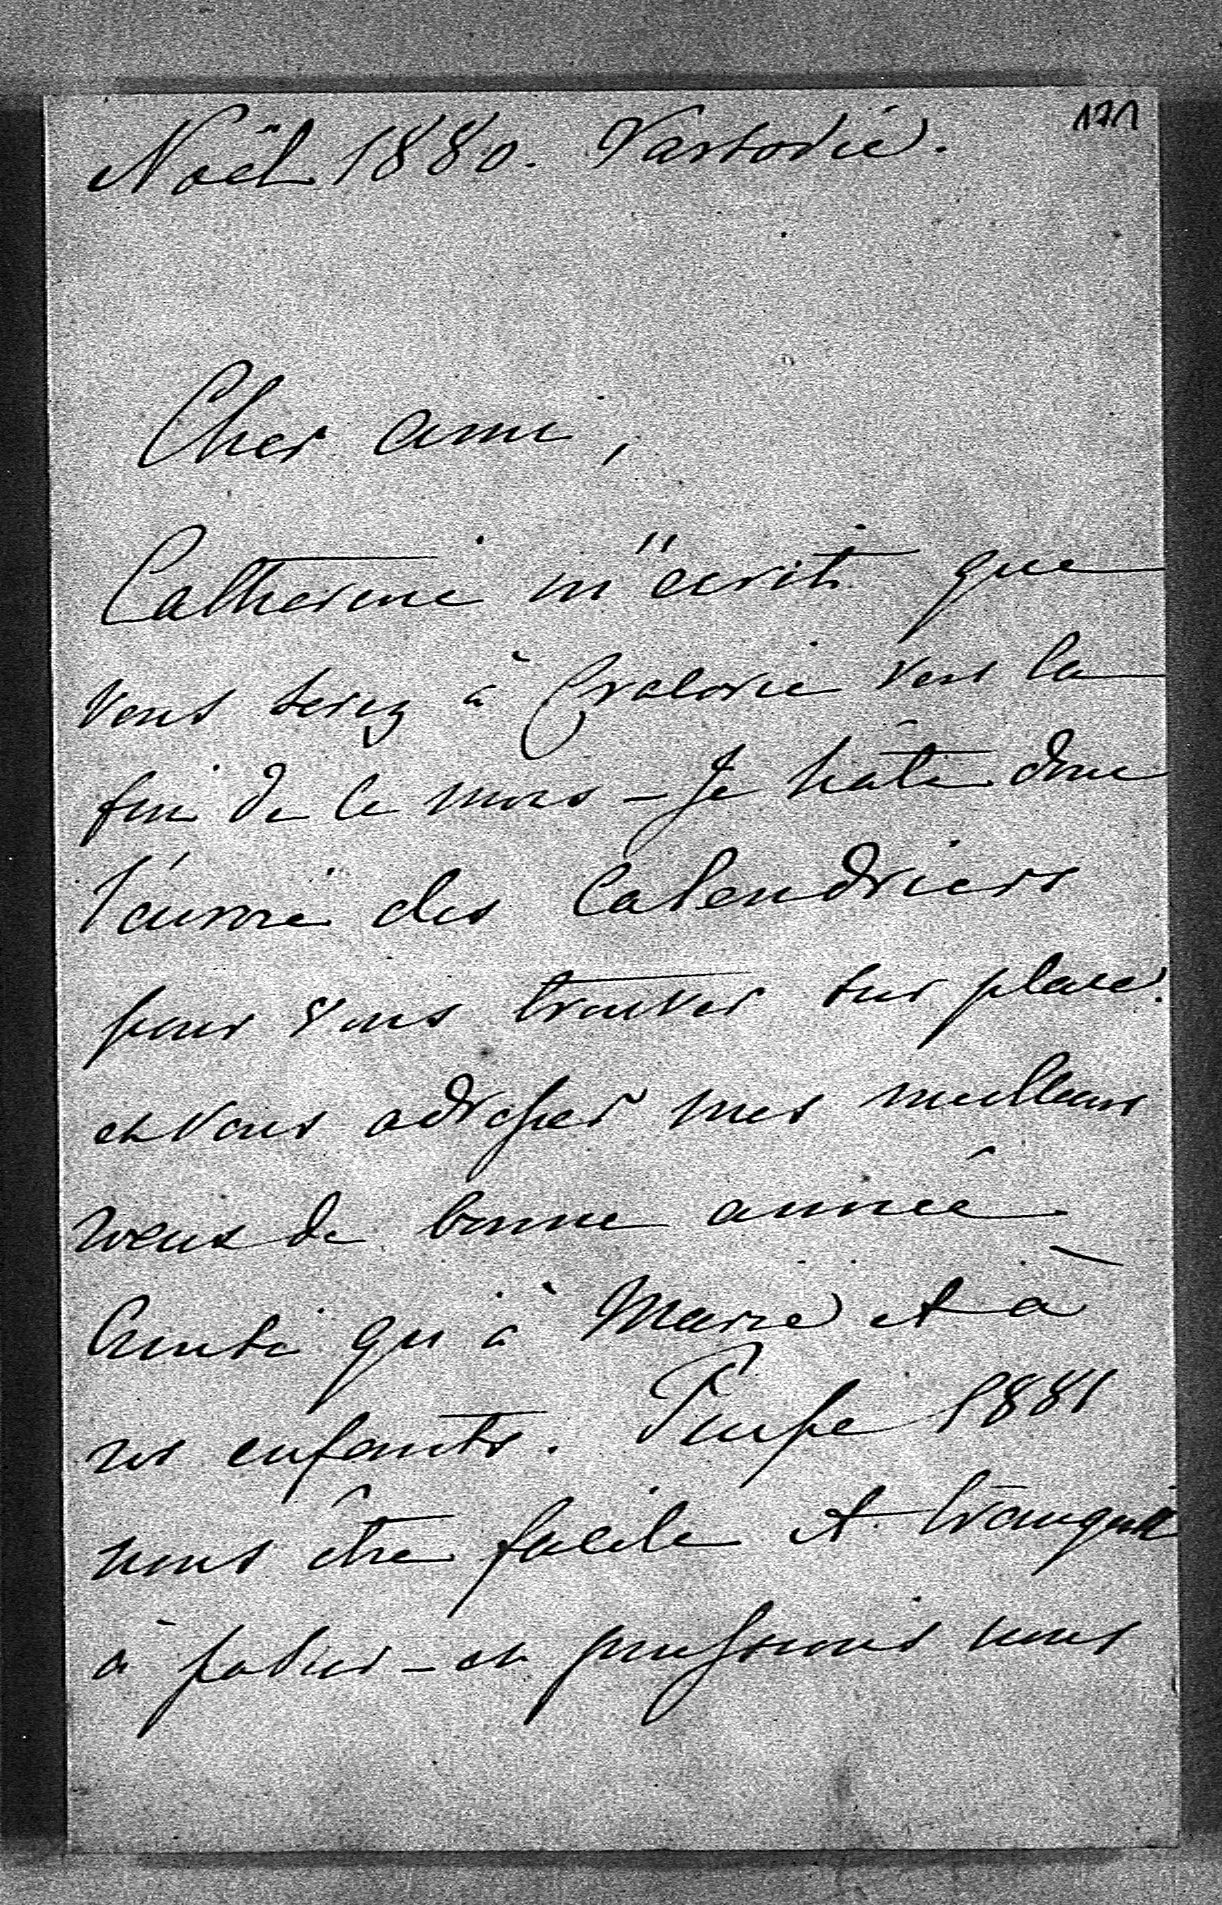 Noël 1880. Varsovie.
171
Cher ami,
Catherine m'écrit que
vous serez à Cracovie vers la
fin de ce mois - Je hâte donc
l'envoi des Calendriers
pour vous trouver sur place
et vous adresser mes meilleurs
vœux de bonne année
ainsi qu'à Marie et à
vos enfants. Puisse 1881
nous être facile et tranquille
à passer - et puissions nous